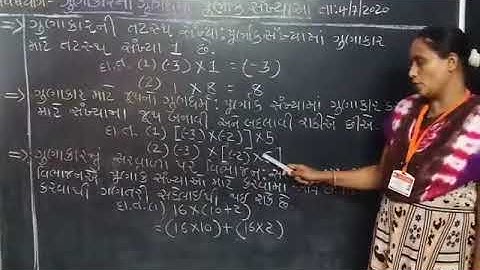 ગુણાકારના ગુણધર્મો પૂર્ણાંક સંખ્યામાં તા:4/7/2020
=> ગુણાકારની તટસ્થ સંખ્યા: પૂર્ણાંક સંખ્યામાં ગુણાકાર
માટે તટસ્થ સંખ્યા 1 છે.
દા.ત. (1) (-3) × 1 = (-3)
(2) 1 × 8 = 8
=> ગુણાકાર માટે જૂથનો ગુણધર્મ: પૂર્ણાંક સંખ્યામાં ગુણાકાર
માટે સંખ્યાના જૂથ બનાવી અને બદલાવી શકીએ છીએ.
દા.ત. (1) [(-3) × (-2)] × 5
(2) (-3) × [(-2) ×
=> ગુણાકારનું સરવાળા પર વિભાજન:
વિભાજનએ પૂર્ણાંક સંખ્યાઓ માટે કરવામાં આવે
કરવાથી ગણતરી સહેલાઈથી થઈ શકે છે
દા.ત. (1) 16 × (10 + 2)
= (16 × 10) + (16 × 2)